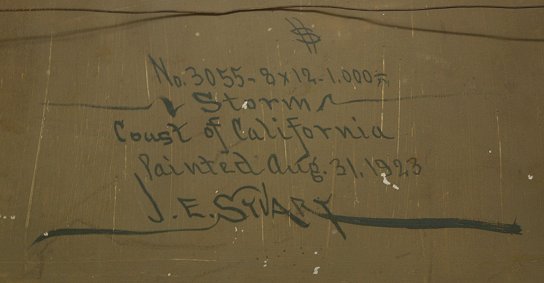 $
No. 3055 - 8 x 12 - 1.000
Storm
Coast of California
Painted Aug. 31. 1923
J. E. Stuart